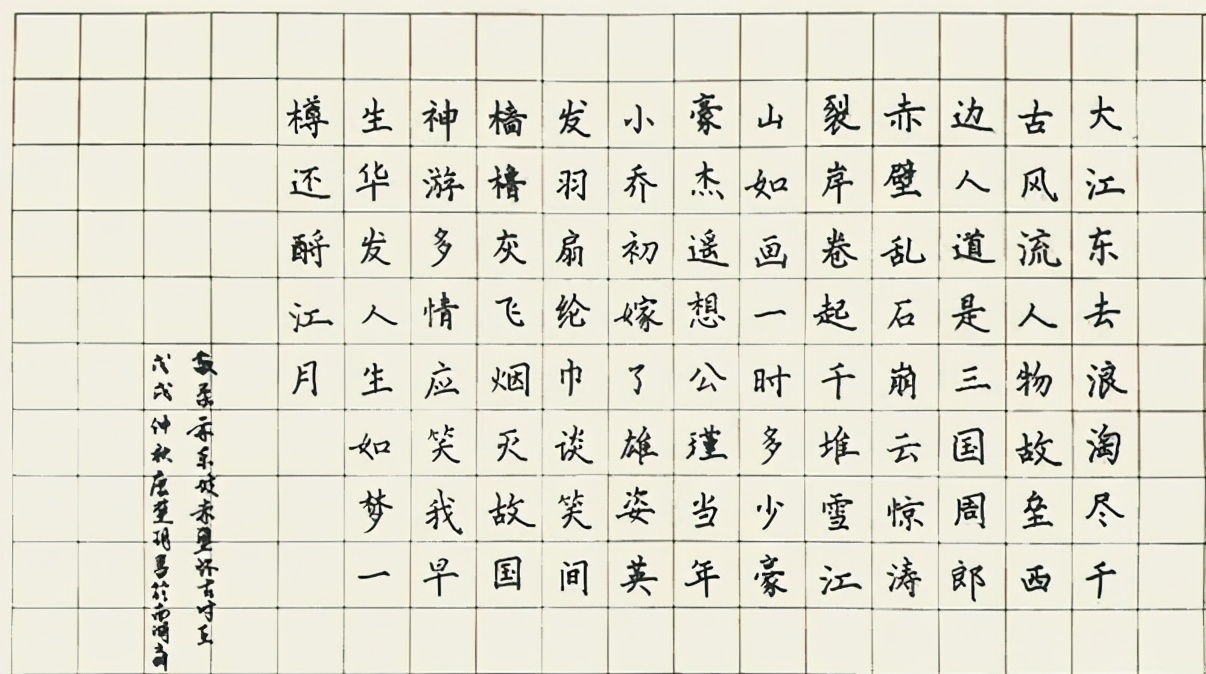 大江东去浪淘尽千
古风流人物故垒西
边人道是三国周郎
赤壁乱石崩云惊涛
裂岸卷起千堆雪江
山如画一时多少豪
豪杰遥想公瑾当年
小乔初嫁了雄姿英
发羽扇纶巾谈笑间
樯橹灰飞烟灭故国
神游多情应笑我早
生华发人生如梦一
樽还酹江月
东坡赤壁怀古时在
戊戌仲秋唐楚玥写於南湖